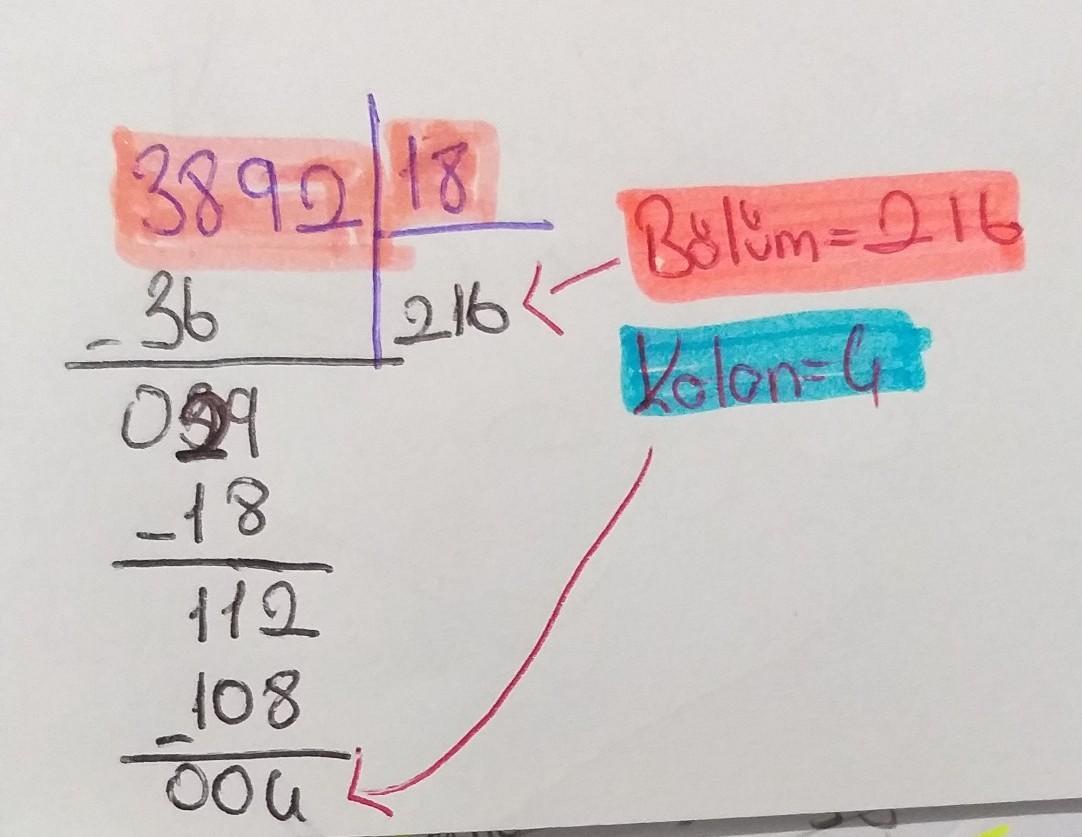 3892 18
- 36 216
029
- 18
112
- 108
004
Bölüm = 216
Kalan = 4